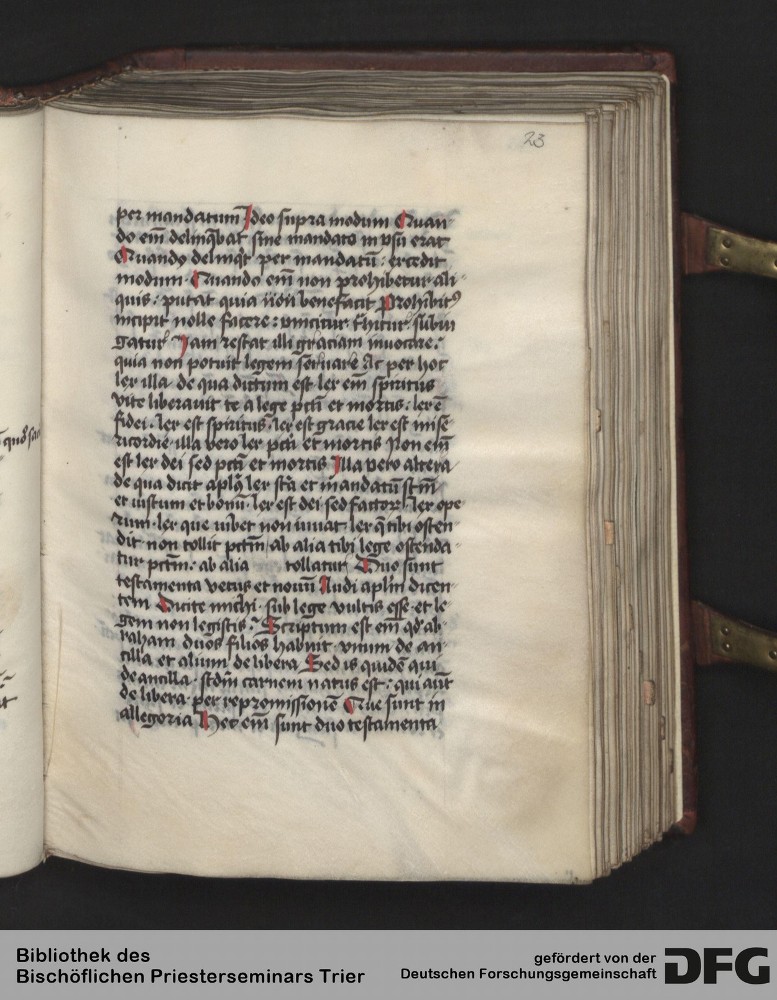 23
per mandatum Ideo supra modum Quan
do em̄ delinq̄bat sine mandato in vsu erat
Quando delinqͥt per mandatū : excedit
modum · Quando em̄ non prohibetur ali
quis : putat quia nōn benefacit Prohibitꝰ
incipit nolle facere : vincitur trahitur subiu
gatur Iam restat illi graciam inuocare :
quia non potuit legem seruare Ac per hoc
lex illa de qua dictum est lex em̄ spiritus
vite liberauit te a lege pctī et mortis : lex ē
fidei · lex est spiritus · lex est gracie lex est mise
ricordie · illa vero lex pctī et mortis Non em̄
est lex dei sed pctī et mortis Illa vero altera
de qua dicit aplūs lex stā et mandatū stm̄
et iustum et bonū · lex est dei sed factoꝝ · lex ope
rum · lex que iubet non iuuat · lex q̄ tibi osten
dit non tollit pctm̄ · ab alia tibi lege ostenda
tur pctm̄ : ab alia tollatur Duo sunt
testamenta vetus et nouū Audi aplm̄ dicen
tem Dicite michi · sub lege vultis esse · et le
gem non legistis : Scriptum est em̄ qd̓ ab
raham duos filios habuit · vnum de an
cilla et alium de libera Sed is quidē qui
de ancilla · scdm̄ carnem natus est : qui aūt
de libera · per repromissionē Que sunt in
allegoria Hec em̄ sunt duo testamenta
Bibliothek des
Bischöflichen Priesterseminars Trier
gefördert von der
Deutschen Forschungsgemeinschaft
DFG